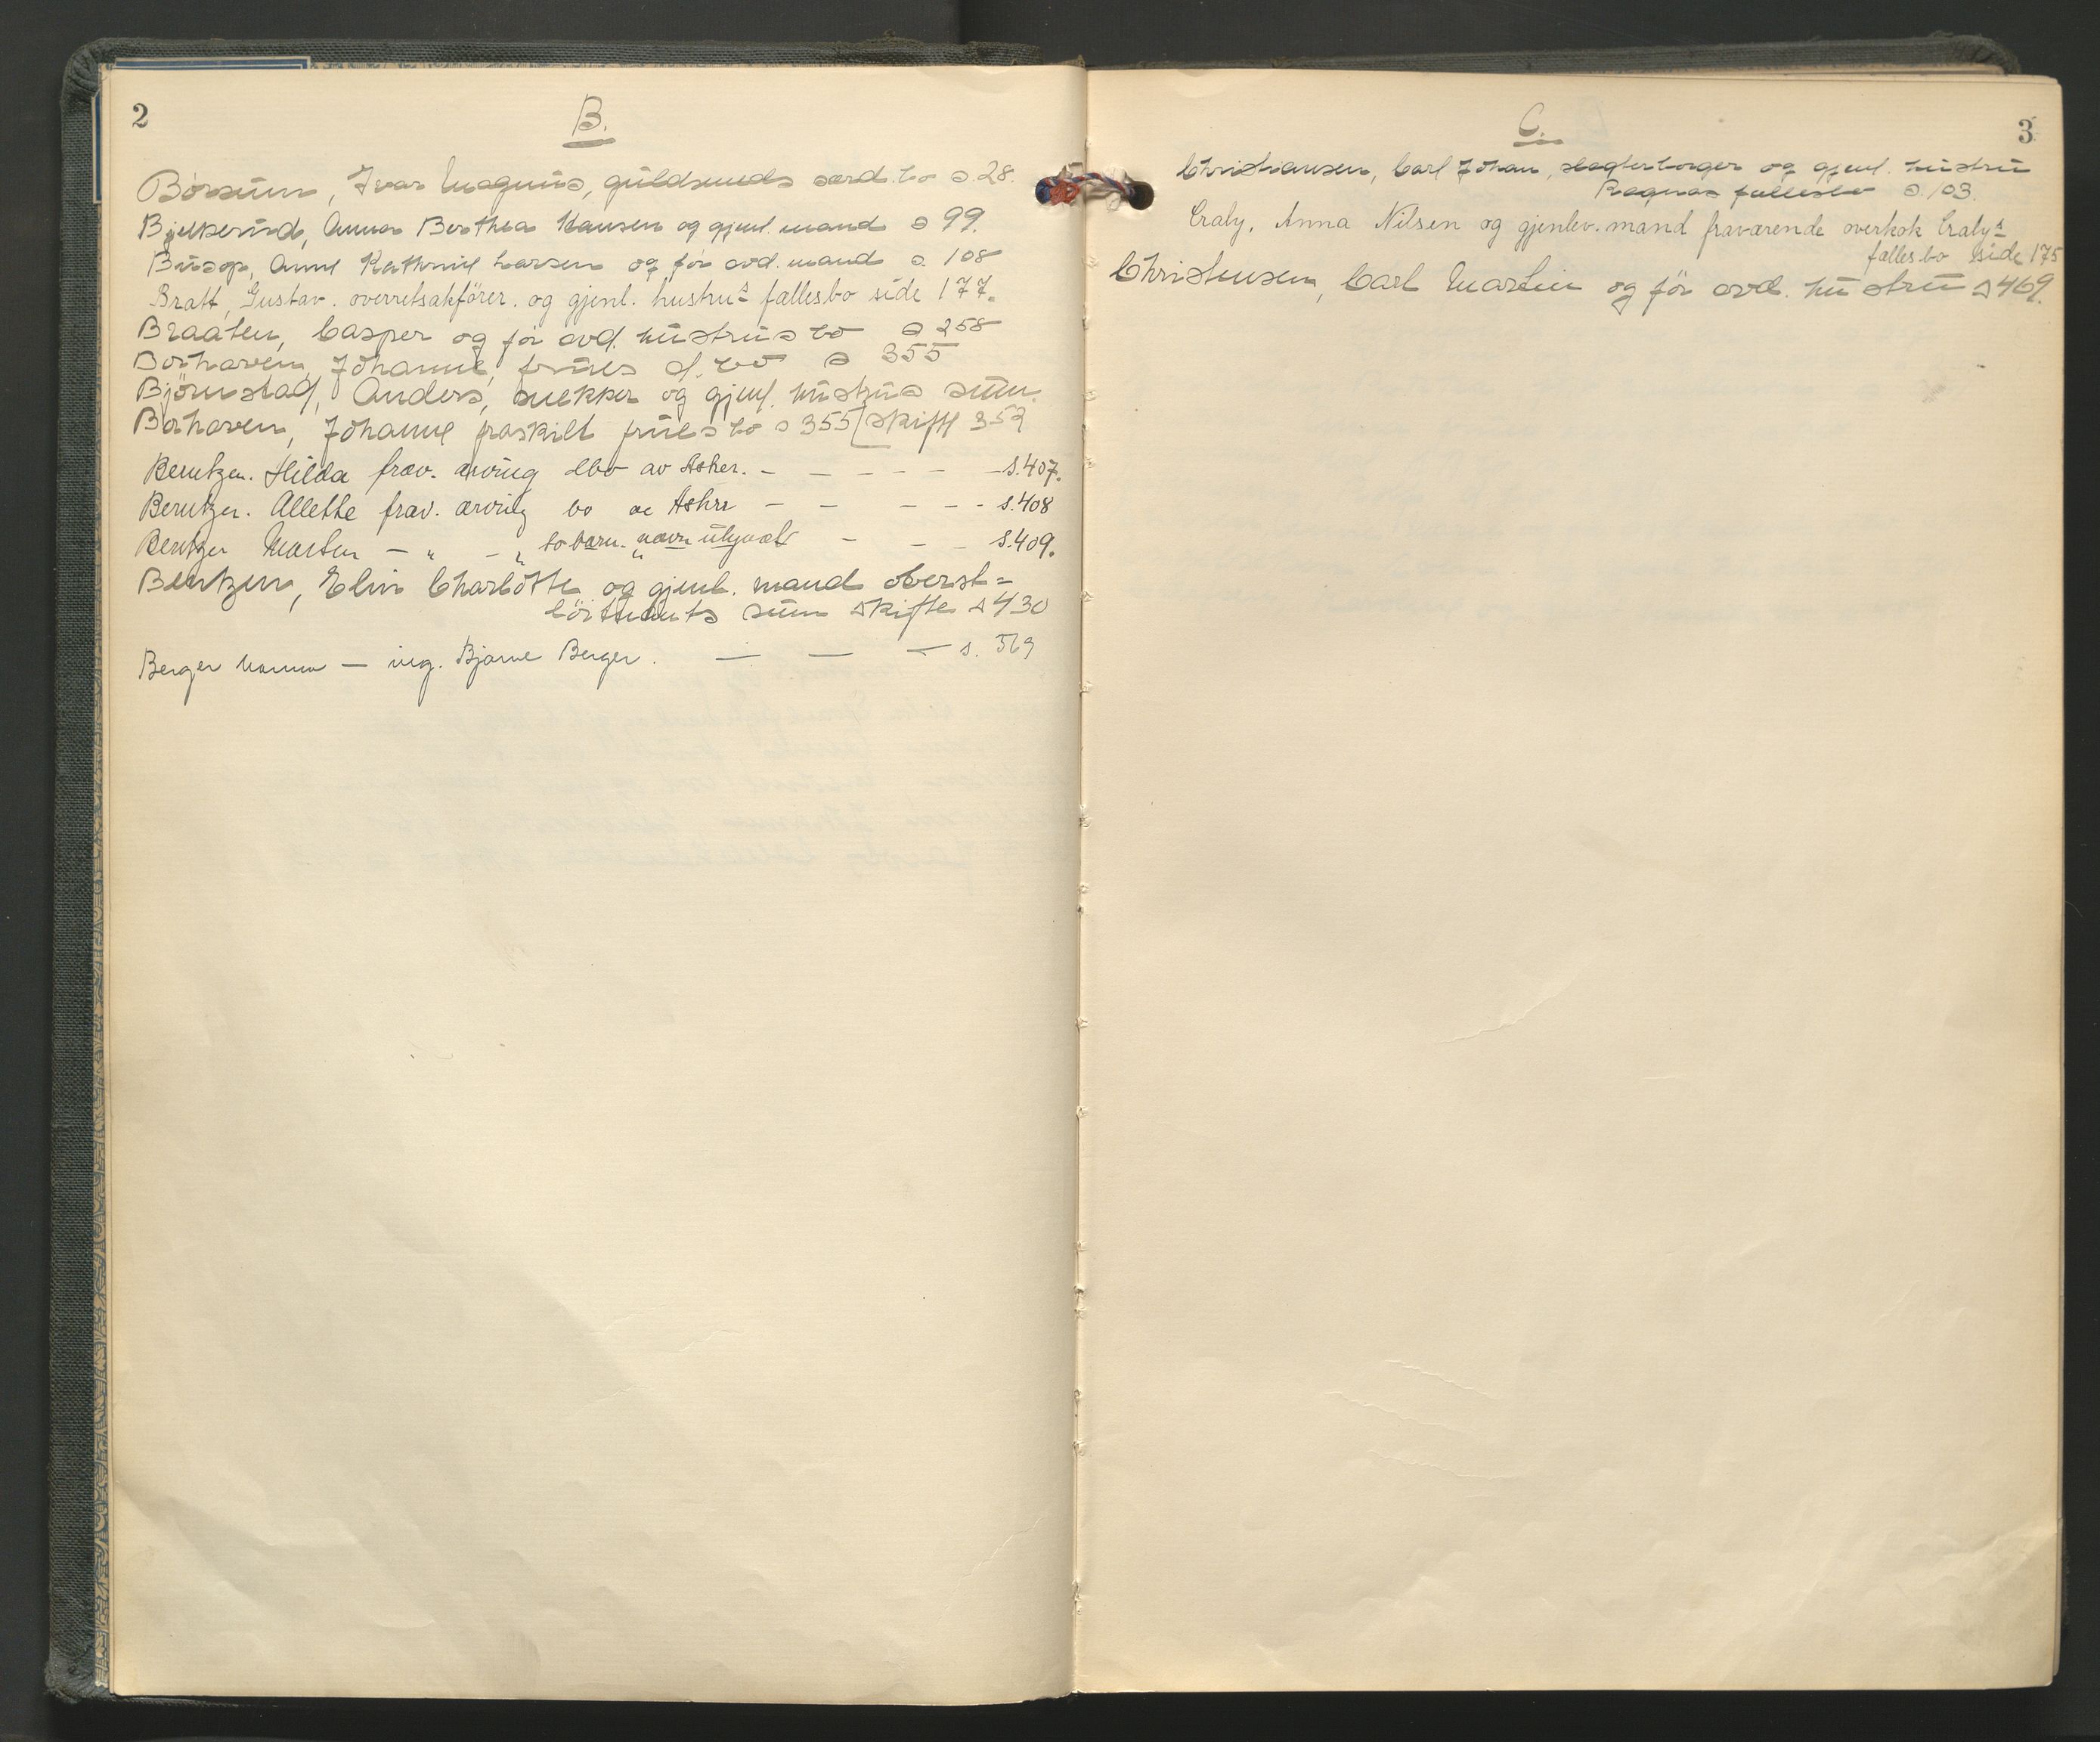 2
B.
Börsum, Ivar Magnus, guldsmeds særd. bo s. 28.
Bjelkerud, Anna Berthea Hansen og gjenl. mand s 99.
Busop, Anne Kathrine Larsen og för avd. mand s. 108
Bratt, Gustav. overretsakförer. og gjenl. hustrus fællesbo side 177.
Braaten, Casper og för avd. hustrus bo s 258
Borhaven, Johanne, frues d. bo s 355
Björnstad, Anders, snekker og gjenl. hustrus sum.
Borhaven, Johanne fraskilt frues bo s 355 / skifte 353
Berntzen. Hilda frav. arving dbo av Asker. - - - - - - s. 407.
Berntzen. Allette frav. arving bo av - - - - - s. 408
Berntzen Morten - " - " bo navn - - - s. 409.
Bentzen, Elin Charlotte og gjenl. mand oberst=
löitnants sum skifte s 430
Berger - ing. Bjarne Berger. - - - s. 569
C.
3
Christiansen, Carl Johan, slagterborger og gjenl. hustru
Ragnas fællesbo s. 103.
Craby, Anna Nilsen og gjenlev. mand fraværende overkok Crabys
fællesbo side 175
Christensen, Carl Martin og för avd. hustru s 469.